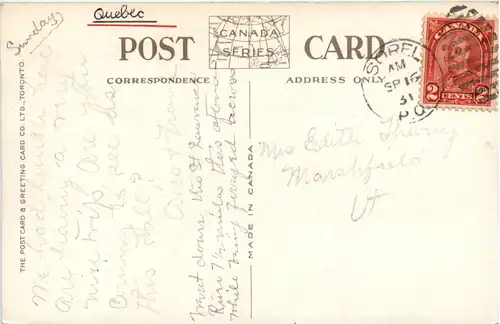 Quebec
Sunday
CANADA
SERIES
POST CARD
CORRESPONDENCE
ADDRESS ONLY
CANADA
2 CENTS 2
AM
SP 16
31
P.Q.
THE POST CARD & GREETING CARD CO. LTD., TORONTO.
MADE IN CANADA
We had
are having a
nice trip are you
coming to see us
this Fall?
Went down the St Lawrence
River 7½ miles this afternoon
while being ferryed across
Mrs Edith
Marshfield
Vt